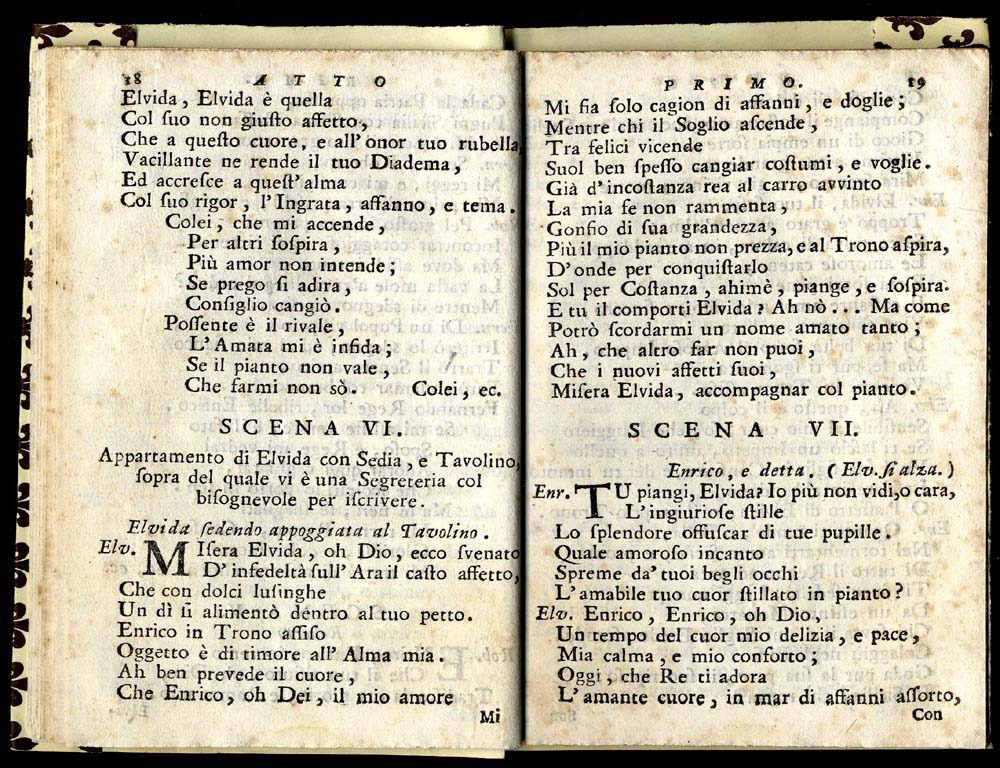 18 ATTO
Elvida, Elvida è quella
Col ſuo non giuſto affetto,
Che a queſto cuore, e all' onor tuo rubella,
Vacillante ne rende il tuo Diadema,
Ed accreſce a queſt' alma
Col ſuo rigor, l'Ingrata, affanno, e tema.
Colei, che mi accende,
Per altri ſoſpira,
Più amor non intende;
Se prego ſi adira,
Conſiglio cangiò.
Poſſente è il rivale,
L'Amata mi è infida;
Se il pianto non vale,
Che farmi non sò. Colei, ec.
SCENA VI.
Appartamento di Elvida con Sedia, e Tavolino,
ſopra del quale vi è una Segreteria col
biſognevole per iſcrivere.
Elvida ſedendo appoggiata al Tavolino.
Elv. MIſera Elvida, oh Dio, ecco ſvenato
D'infedeltà ſull'Ara il caſto affetto,
Che con dolci luſinghe
Un dì ſi alimentò dentro al tuo petto.
Enrico in Trono aſſiſo
Oggetto è di timore all' Alma mia.
Ah ben prevede il cuore,
Che Enrico, oh Dei, il mio amore
Mi
PRIMO. 19
Mi ſia ſolo cagion di affanni, e doglie;
Mentre chi il Soglio aſcende,
Tra felici vicende
Suol ben ſpeſſo cangiar coſtumi, e voglie.
Già d'incoſtanza rea al carro avvinto
La mia fe non rammenta,
Gonfio di ſua grandezza,
Più il mio pianto non prezza, e al Trono aſpira,
D'onde per conquiſtarlo
Sol per Coſtanza, ahimè, piange, e ſoſpira.
E tu il comporti Elvida? Ah nò... Ma come
Potrò ſcordarmi un nome amato tanto;
Ah, che altro far non puoi,
Che i nuovi affetti ſuoi,
Miſera Elvida, accompagnar col pianto.
SCENA VII.
Enrico, e detta. (Elv. ſi alza.)
Enr. TU piangi, Elvida? Io più non vidi, o cara,
L'ingiurioſe ſtille
Lo ſplendore offuſcar di tue pupille.
Quale amoroſo incanto
Spreme da' tuoi begli occhi
L'amabile tuo cuor ſtillato in pianto?
Elv. Enrico, Enrico, oh Dio,
Un tempo del cuor mio delizia, e pace,
Mia calma, e mio conforto;
Oggi, che Re ti adora
L'amante cuore, in mar di affanni aſſorto,
Con